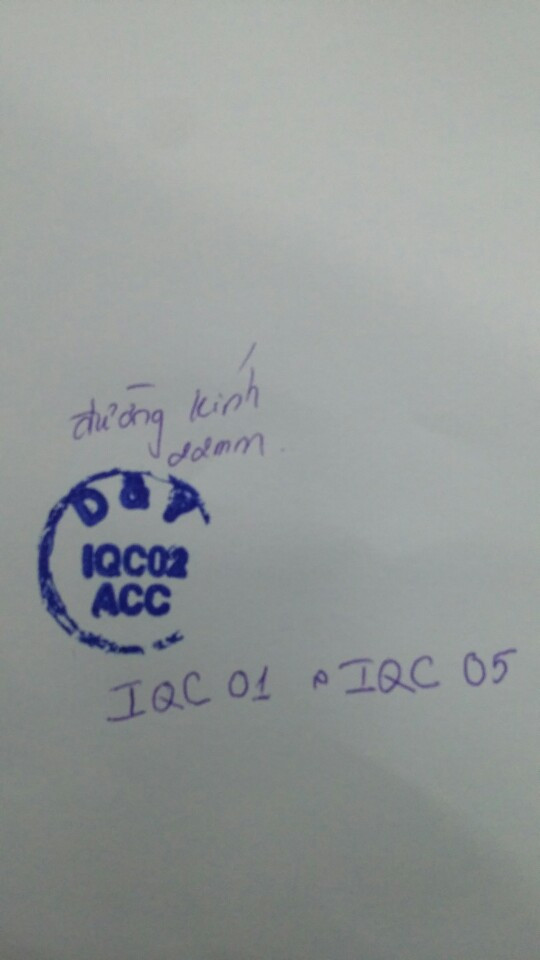 đường kính
22mm
D&P
IQC02
ACC
IQC 01 ~ IQC 05